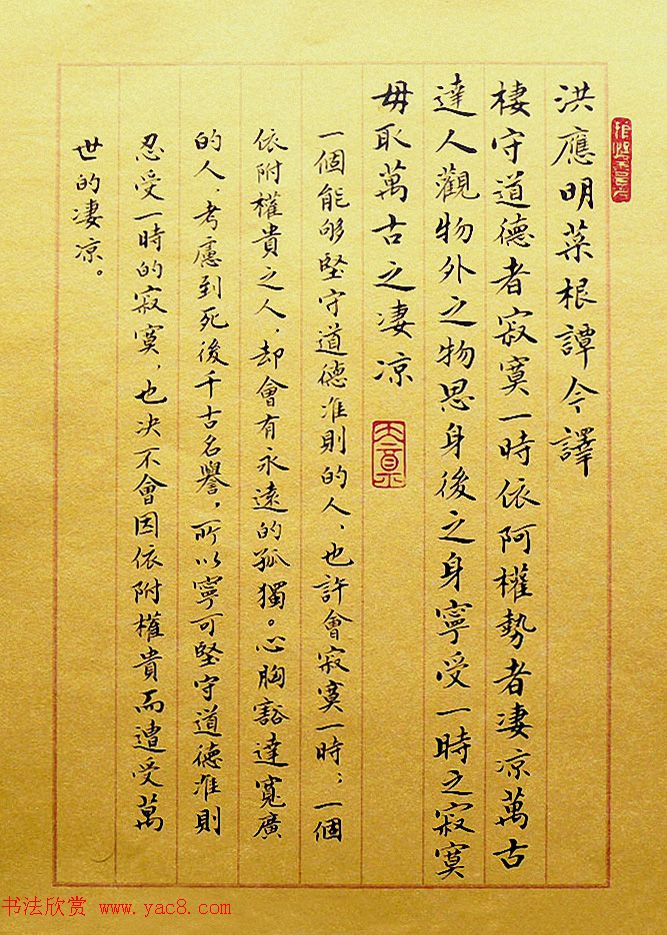 洪應明菜根譚今譯
棲守道德者寂寞一時依阿權勢者淒涼萬古
達人觀物外之物思身後之身寧受一時之寂寞
毋取萬古之淒涼
一個能够堅守道德准則的人、也許會寂寞一時；一個
依附權貴之人、却會有永遠的孤獨。心胸豁達寬廣
的人、考慮到死後千古名譽，所以寧可堅守道德准則
忍受一時的寂寞，也决不會因依附權貴而遭受萬
世的淒凉。
书法欣赏 www.yac8.com